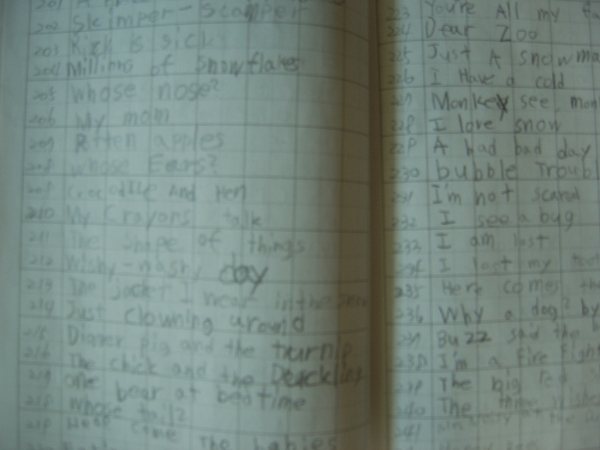 202 Skimper-Scamper
203 Rick is sick
204 Millions of Snowflakes
205 whose nose?
206 My mom
207 Rotten apples
208 whose Ears?
209 Crocodile And Hen
210 My Crayons talk
211 The Shape of things
212 Wishy-washy day
213 The jacket I wear in the snow
214 Just clowning around
215 Digger pig and the turnip
216 The chick and the Duckling
217 one bear at bedtime
218 whose tail?
219 Here come the babies
223 You're All my fa
224 Dear Zoo
225 Just A snowma
226 I Have a cold
227 Monkey see, mon
228 I love snow
229 A bad bad day
230 bubble Troubl
231 I'm not scared
232 I see a bug
233 I am lost
234 I lost my
235 Here comes the
236 Why a dog? by
237 Buzz said the
238 I'm a fire fight
239 The big
240 The
241